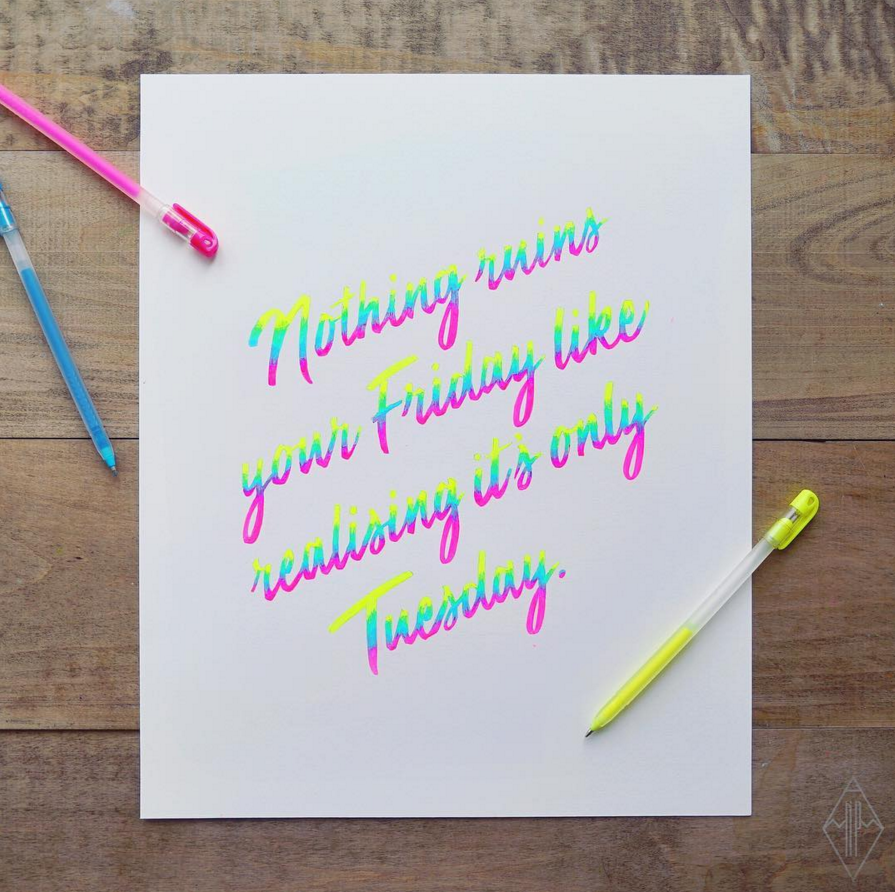 Nothing ruins
your Friday like
realising it's only
Tuesday.